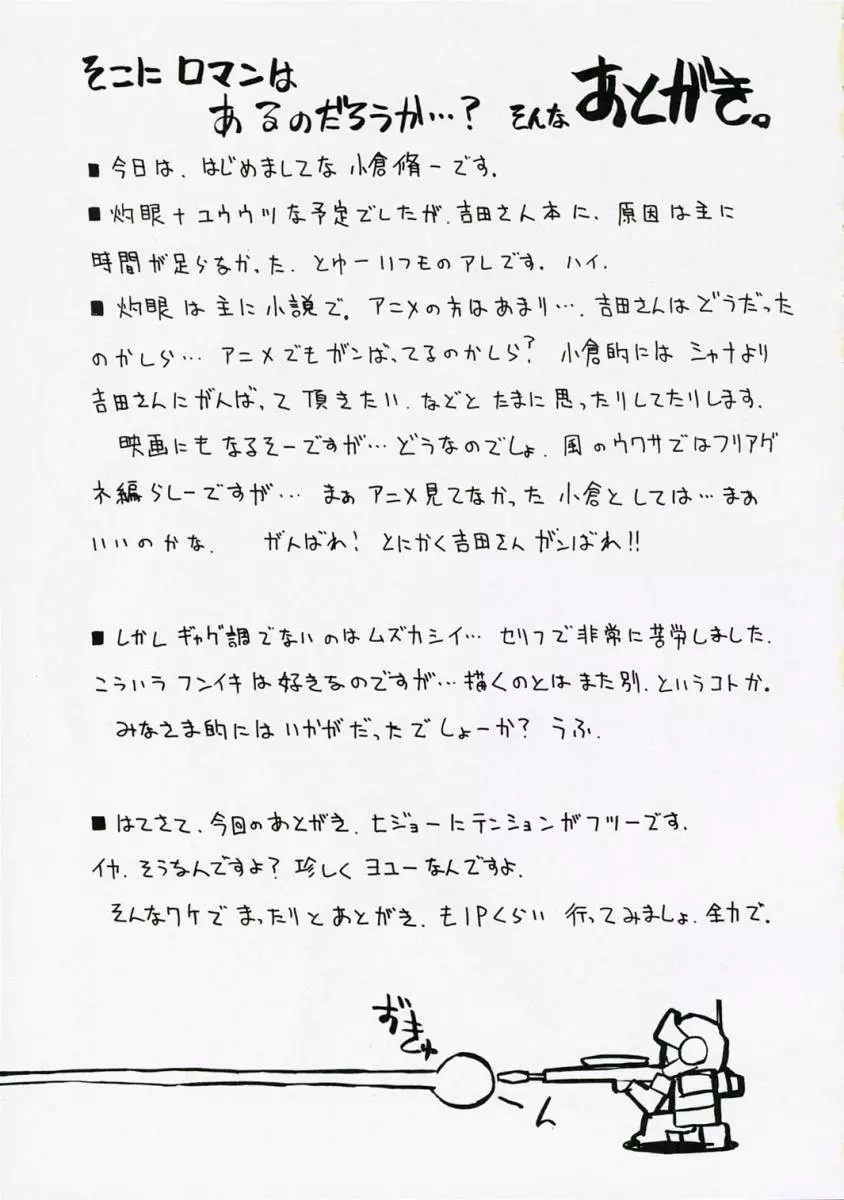 そこに ロマンは
あるのだろうか…? そんな あとがき。
■ 今日は、はじめましてな 小倉脩一です。
■ 灼眼+ユウウツな予定でしたが、吉田さん本に、原因は主に
時間が足らなかった、とゆーいつものアレです。ハイ、
■ 灼眼は主に小説で。アニメの方はあまり…、吉田さんはどうだった
のかしら… アニメでもガンばってるのかしら? 小倉的には シャナより
吉田さんにがんばって 頂きたい、などと たまに思ったりしてたりします。
映画にもなるそーですが… どうなのでしょ、風のウワサではフリアゲ
ネ編らしーですが… まぁアニメ見てなかった 小倉としては… まぁ
いいのかな、 がんばれ! とにかく吉田さん ガンばれ!!
■ しかし ギャグ調でないのはムズカシイ… セリフで非常に苦労しました、
こういう フンイキは好きなのですが… 描くのとは また別、というコトか。
みなさま的には いかがだったでしょーか? うふ、
■ はてさて、今回のあとがき、ヒジョーにテンションがフツーです。
イヤ、そうなんですよ? 珍しく ヨユーなんですよ、
そんなワケで まったりと あとがき、も1Pくらい 行ってみましょ、全力で。
おきゅ
ーん